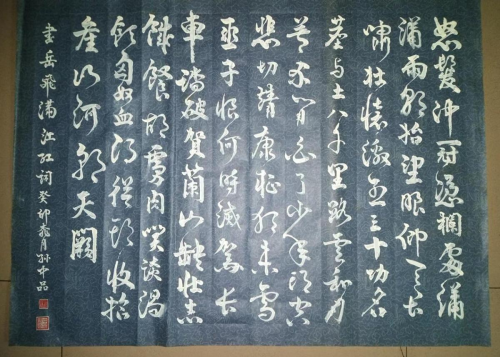 怒髮沖冠憑欄處瀟
瀟雨歇抬望眼仰天長
嘯壯懷激烈三十功名
塵與土八千里路雲和月
莫等閒白了少年頭空
悲切靖康耻猶未雪
臣子恨何時滅駕長
車踏破賀蘭山缺壯志
饑餐胡虜肉笑談渴
飲匈奴血待從頭收拾
舊山河朝天闕
書岳飛滿江紅詞癸卯月孙品